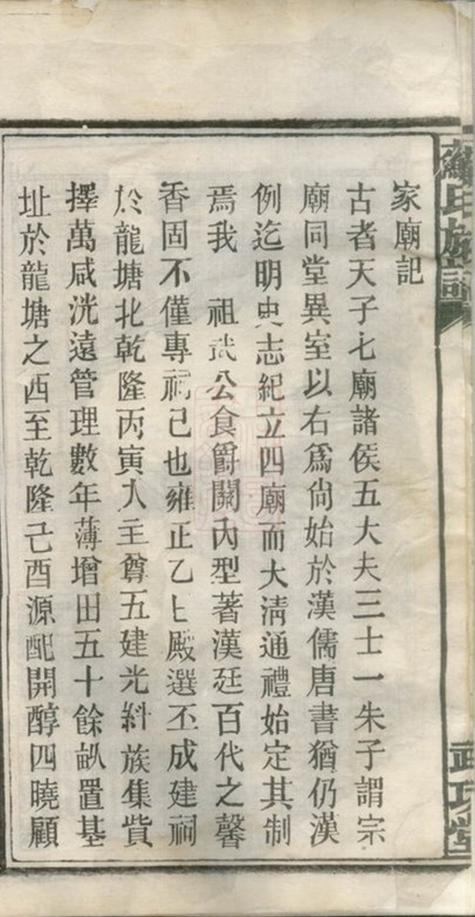 蘇氏族譜
武功堂
家廟記
古者天子七廟諸侯五大夫三士一朱子謂宗
廟同堂異室以右爲尙始於漢儒唐書猶仍漢
例迄明史志紀立四廟而大淸通禮始定其制
焉我 祖武公食爵關內型著漢廷百代之馨
香固不僅專祠己也雍正乙七殿選丕成建祠
於龍塘北乾隆丙寅人主尊五建光斜族集貲
擇萬咸洸遠管理數年薄增田五十餘畝置基
址於龍塘之西至乾隆己酉源配開醇四曉顧